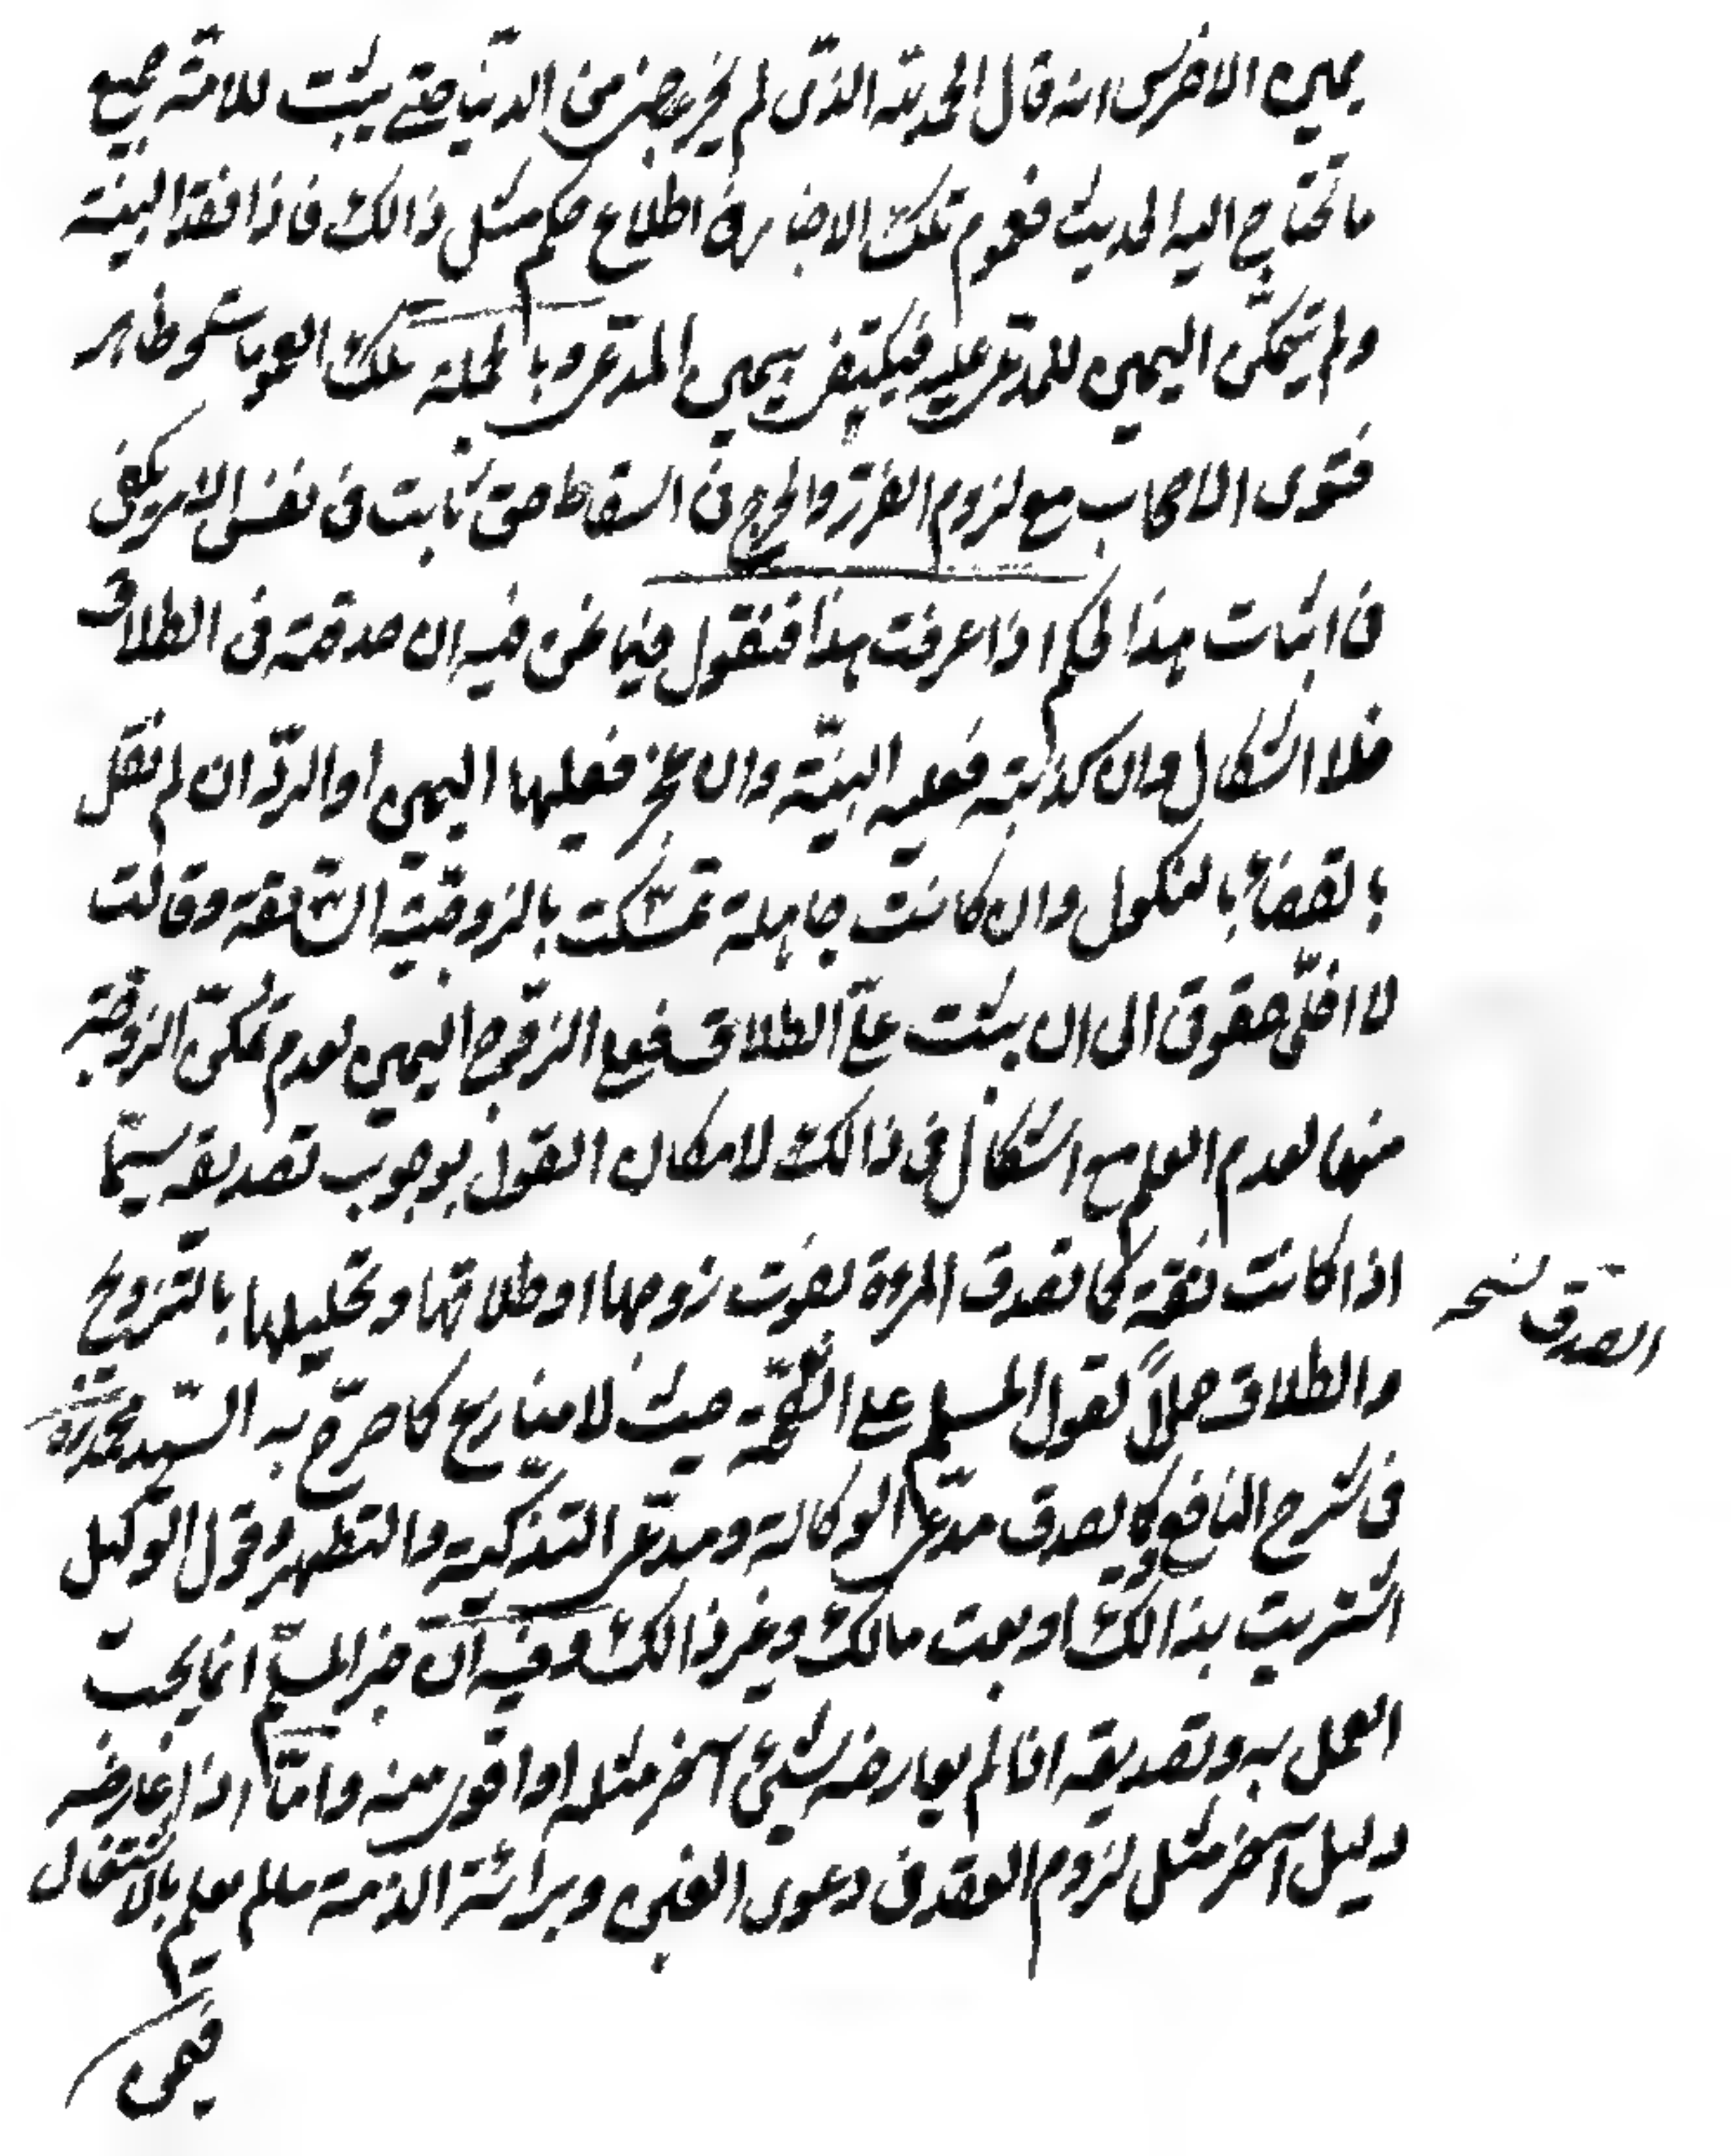 يمين الاخرس انه قال الحمد لله الذى لم يخرجنى من الدنيا حتى بينت للامة جميع
ما تحتاج اليه الحديث فعموم تلك الاخبار اطلاع حكم مثل ذالك فاذا فقد البينة
ولم يتمكن اليمين للمدعى عليه فيكتفى بيمين المدعى وبالجملة تلك العمومات نحو ظاهر
فتوى الاصحاب مع لزوم الضرر والحرج فى اسقاط حق ثابت فى نفس الامر يكفى
فى اثبات هذا الحكم اذا عرفت هذا فنقول فيما نحن فيه ان صدقته فى الطلاق
فلا اشكال وان كذبته فعليه البينة وان عجز فعليها اليمين او الرد ان لم نقل
بالقضاء بالنكول وان كانت جاهلة تمسكت بالزوجية السابقة وقالت
لا اخلى حقوقى الى ان يثبت على الطلاق فعلى الزوج اليمين لعدم تمكن الزوجة
منها لعدم العلم مع اشكال فى ذالك لامكان القول بوجوب تصديقه سيما
اذا كانت ثقة كما تصدق المرءة بفوت زوجها او طلاقها وتحليلها بالتزويج
والطلاق حملاً لقول المسلم على الصحة حيث لا منازع كما صرح به السيد محمد ره
فى شرح النافع وكما يصدق مدعى الوكالة ومدعى التذكية والتطهير وقول الوكيل
اشتريت بذالك او بعت مالك وغير ذالك وفيه ان خبر المسلم انما يجب
العمل به وتصديقه اذا لم يعارضه شيئ آخر مثله او اقوى منه واما اذا عارضه
دليل آخر مثل لزوم العقد فى دعوى الغبن وبرائة الذمة ما لم يعلم بالاشتغال
فيمن
الصدق نسخه